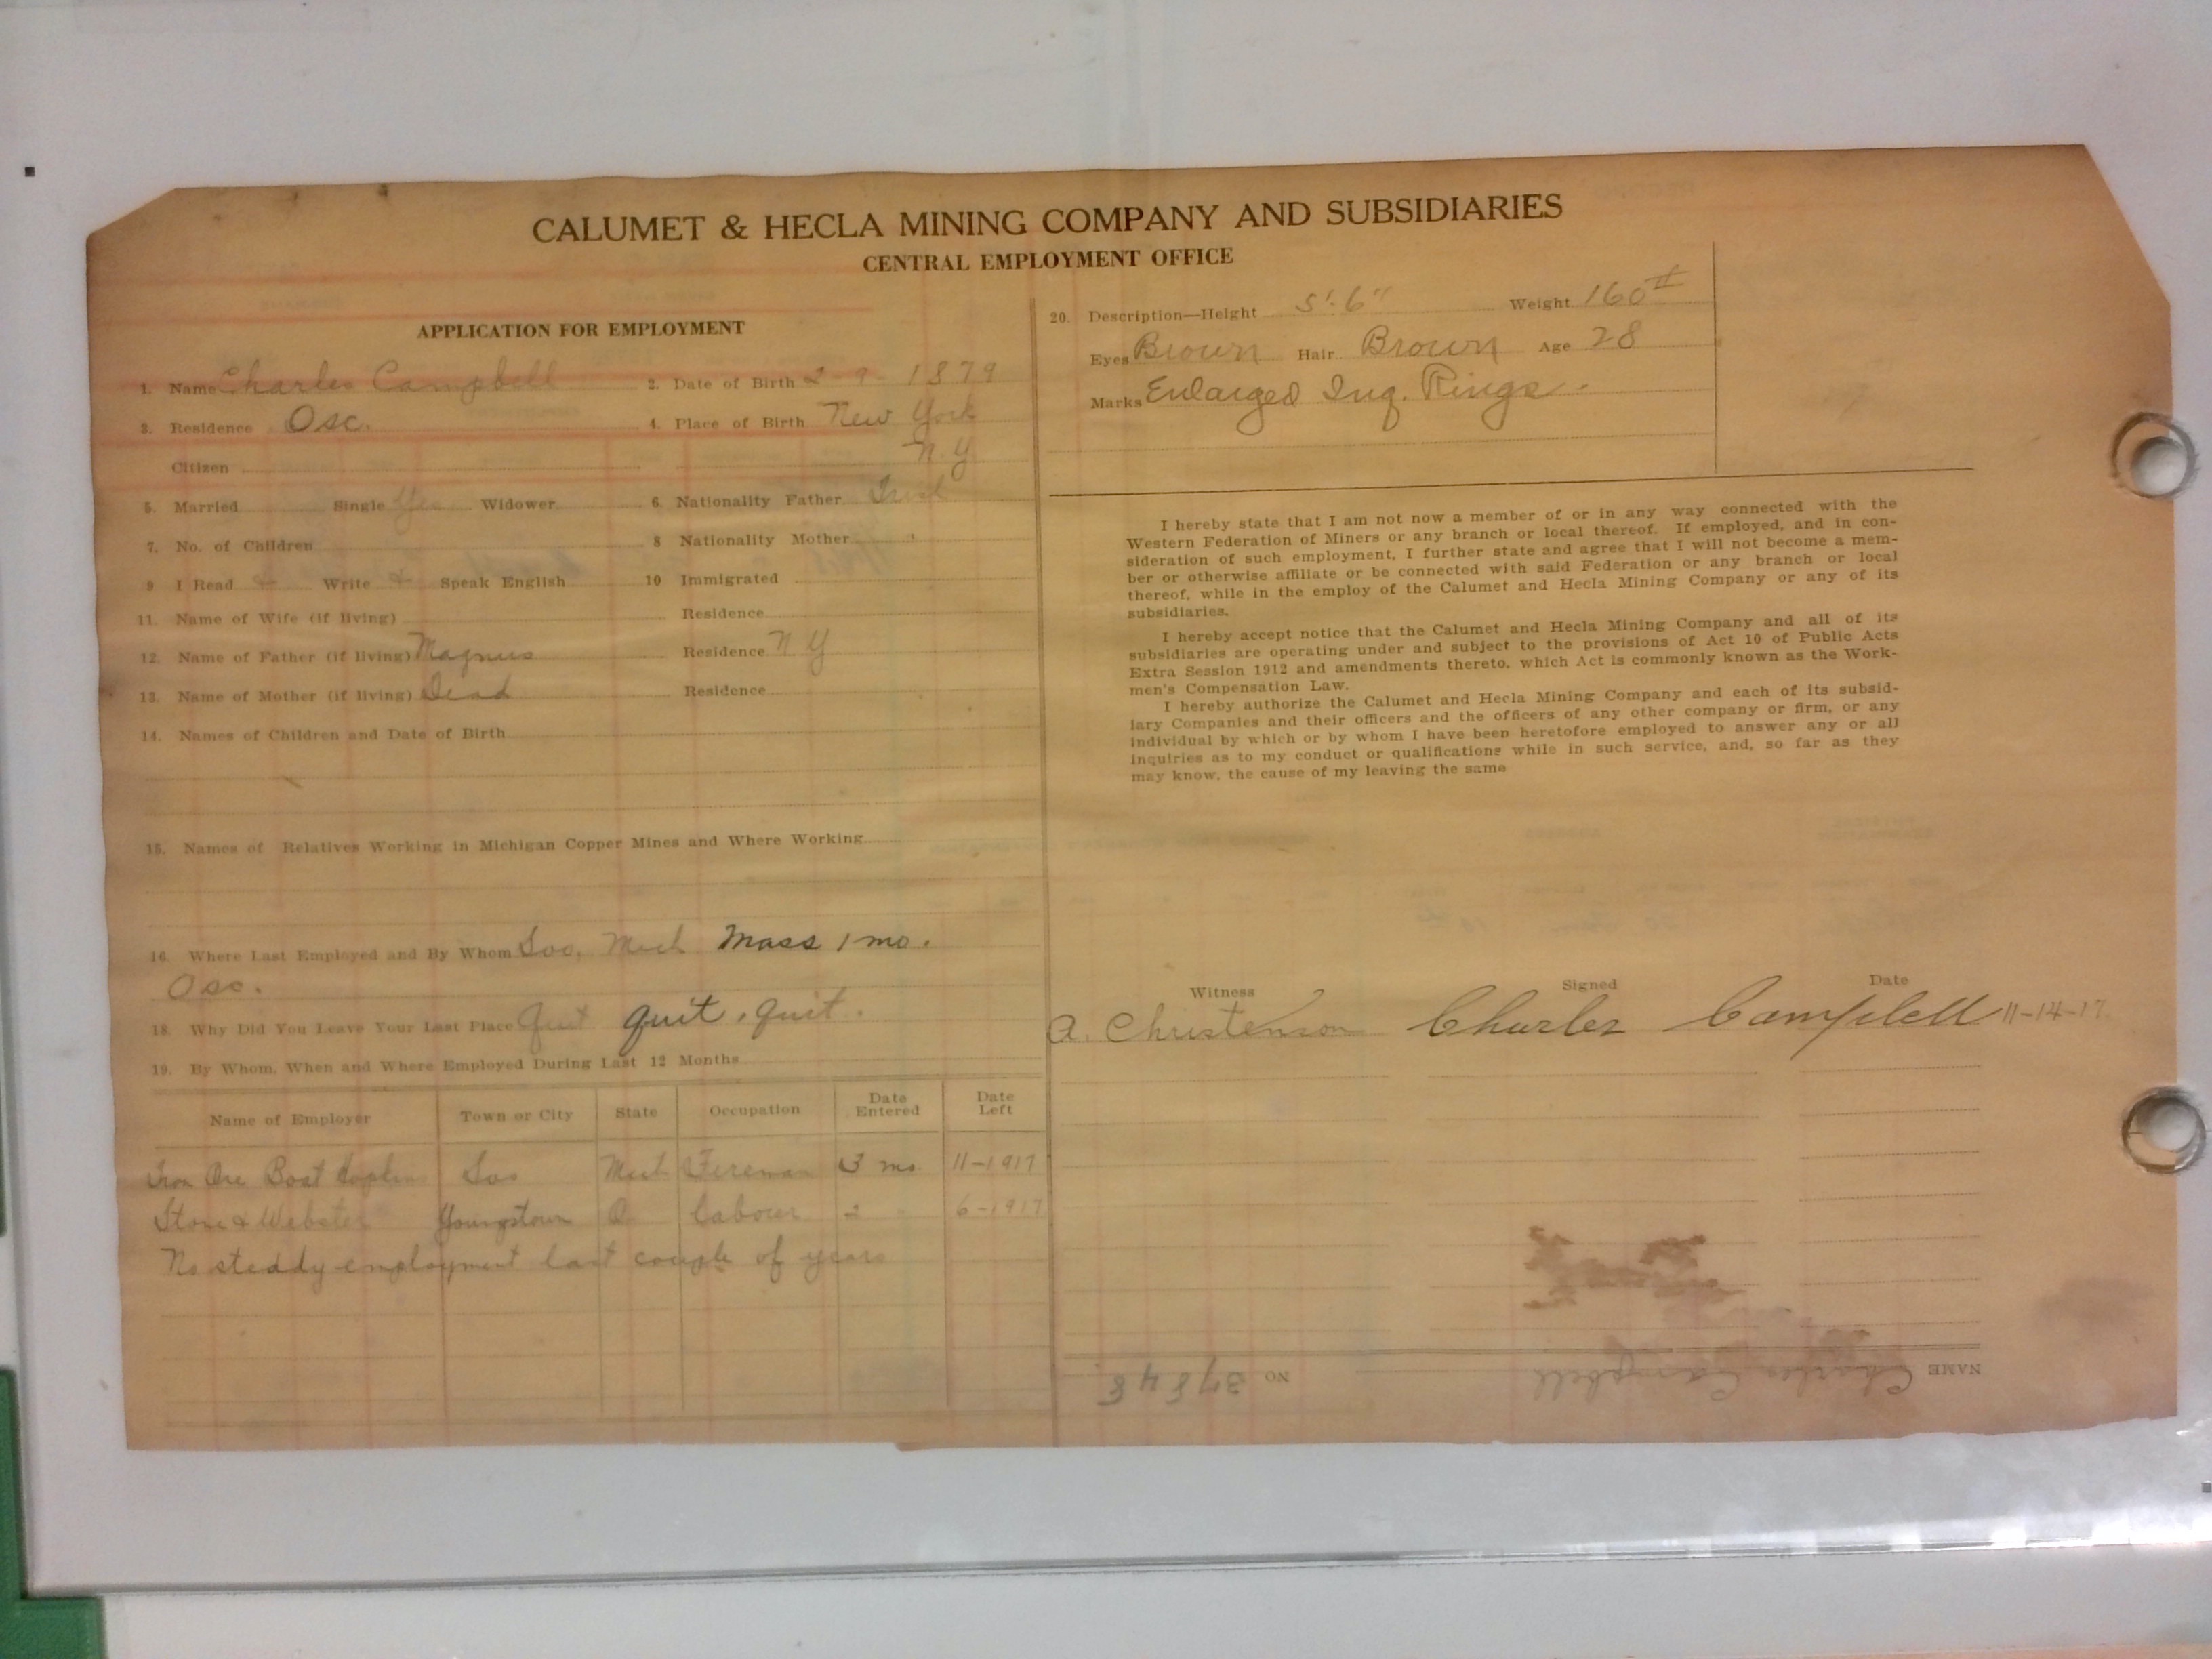 CALUMET & HECLA MINING COMPANY AND SUBSIDIARIES
CENTRAL EMPLOYMENT OFFICE
APPLICATION FOR EMPLOYMENT
1. Name Charles Campbell 2. Date of Birth 2-9-1879
3. Residence Osc. 4. Place of Birth New York
Citizen N.Y
5. Married Single Yes Widower 6. Nationality Father
7. No. of Children 8 Nationality Mother
9 I Read Write Speak English 10 Immigrated
11. Name of Wife (if living) Residence
12. Name of Father (if living) Magnus Residence N Y
13. Name of Mother (if living) Dead Residence
14. Names of Children and Date of Birth
15. Names of Relatives Working in Michigan Copper Mines and Where Working
16. Where Last Employed and By Whom Soo, Mich Mass 1 mo.
Osc.
18. Why Did You Leave Your Last Place Quit quit, quit.
19. By Whom, When and Where Employed During Last 12 Months
Name of Employer Town or City State Occupation Date Entered Date Left
Iron Ore Boat Soo Mich Fireman 3 mo. 11-1917
Stone & Webster Youngstown O Labourer 2 " 6-1917
No steddy employment last couple of years
20. Description—Height 5'.6" Weight 160#
Eyes Brown Hair Brown Age 28
Marks Enlarged Ing. Rings.
I hereby state that I am not now a member of or in any way connected with the
Western Federation of Miners or any branch or local thereof. If employed, and in con-
sideration of such employment, I further state and agree that I will not become a mem-
ber or otherwise affiliate or be connected with said Federation or any branch or local
thereof, while in the employ of the Calumet and Hecla Mining Company or any of its
subsidiaries.
I hereby accept notice that the Calumet and Hecla Mining Company and all of its
subsidiaries are operating under and subject to the provisions of Act 10 of Public Acts
Extra Session 1912 and amendments thereto, which Act is commonly known as the Work-
men's Compensation Law.
I hereby authorize the Calumet and Hecla Mining Company and each of its subsid-
iary Companies and their officers and the officers of any other company or firm, or any
individual by which or by whom I have been heretofore employed to answer any or all
inquiries as to my conduct or qualifications while in such service, and, so far as they
may know, the cause of my leaving the same
Witness Signed Date
A. Christenson Charles Campbell 11-14-17
NAME Charles Campbell NO 37848